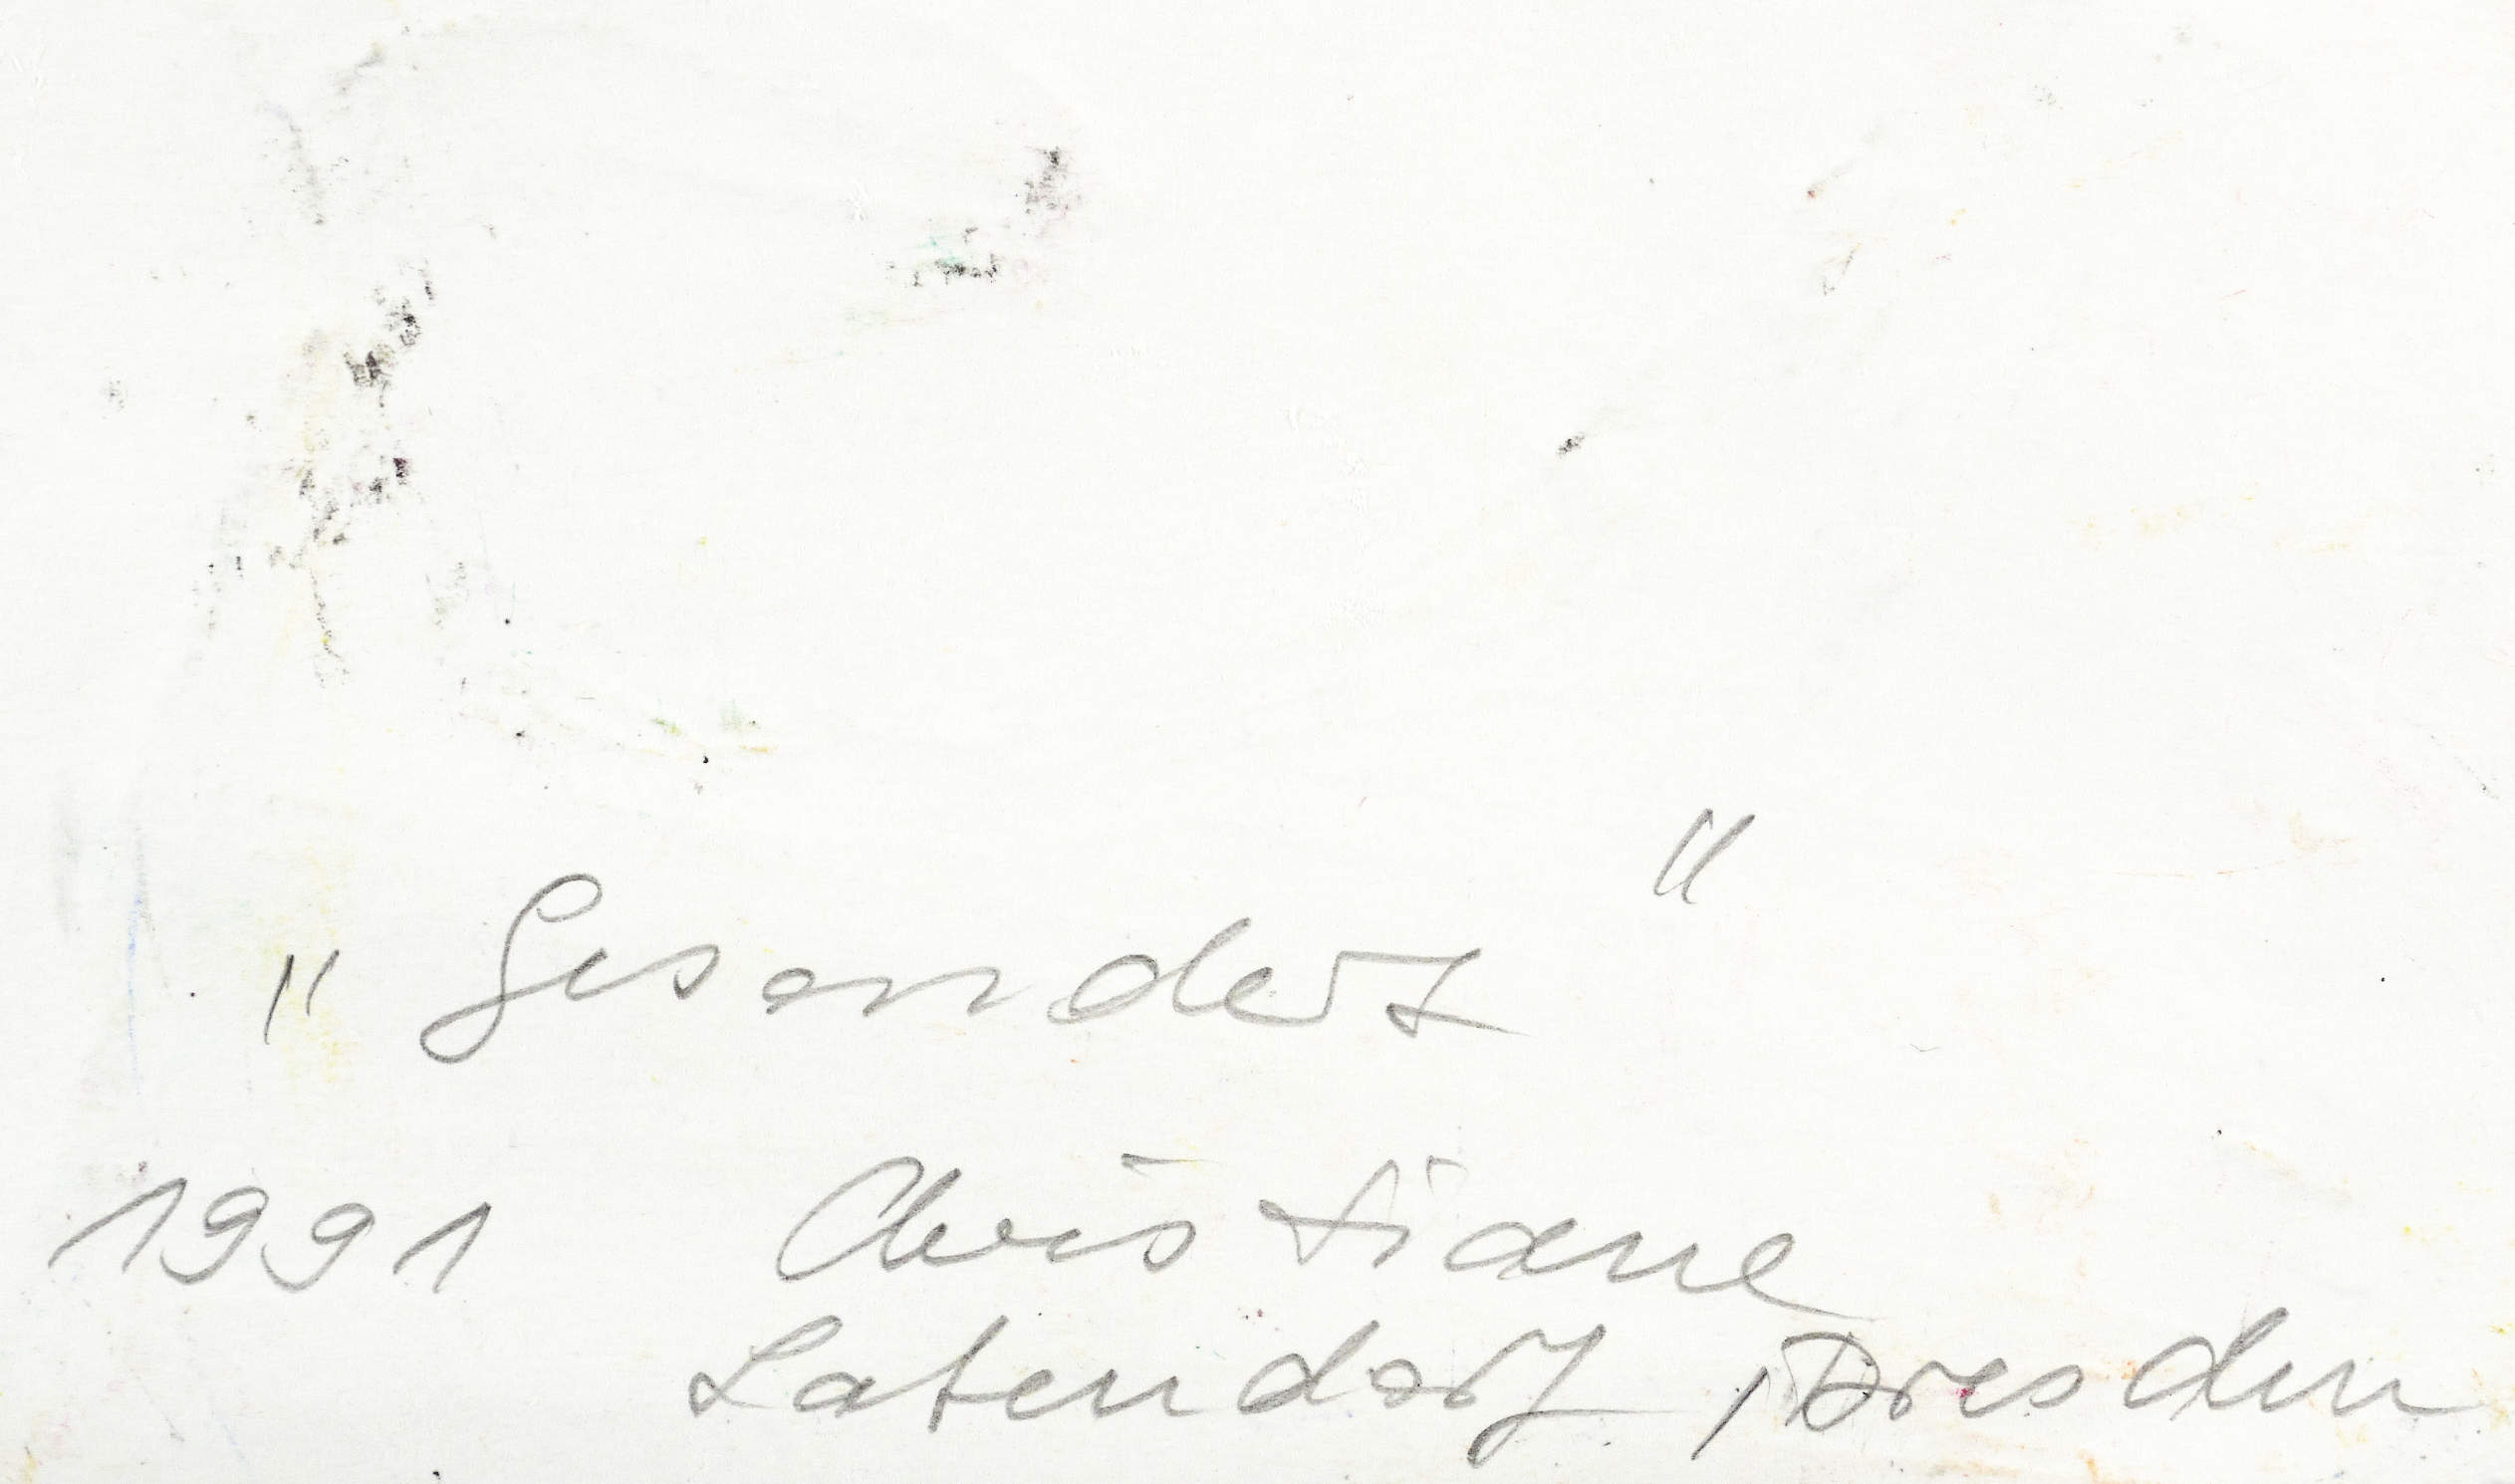 „Gesondert"
1991 Christiane
Latendorf, Dresden